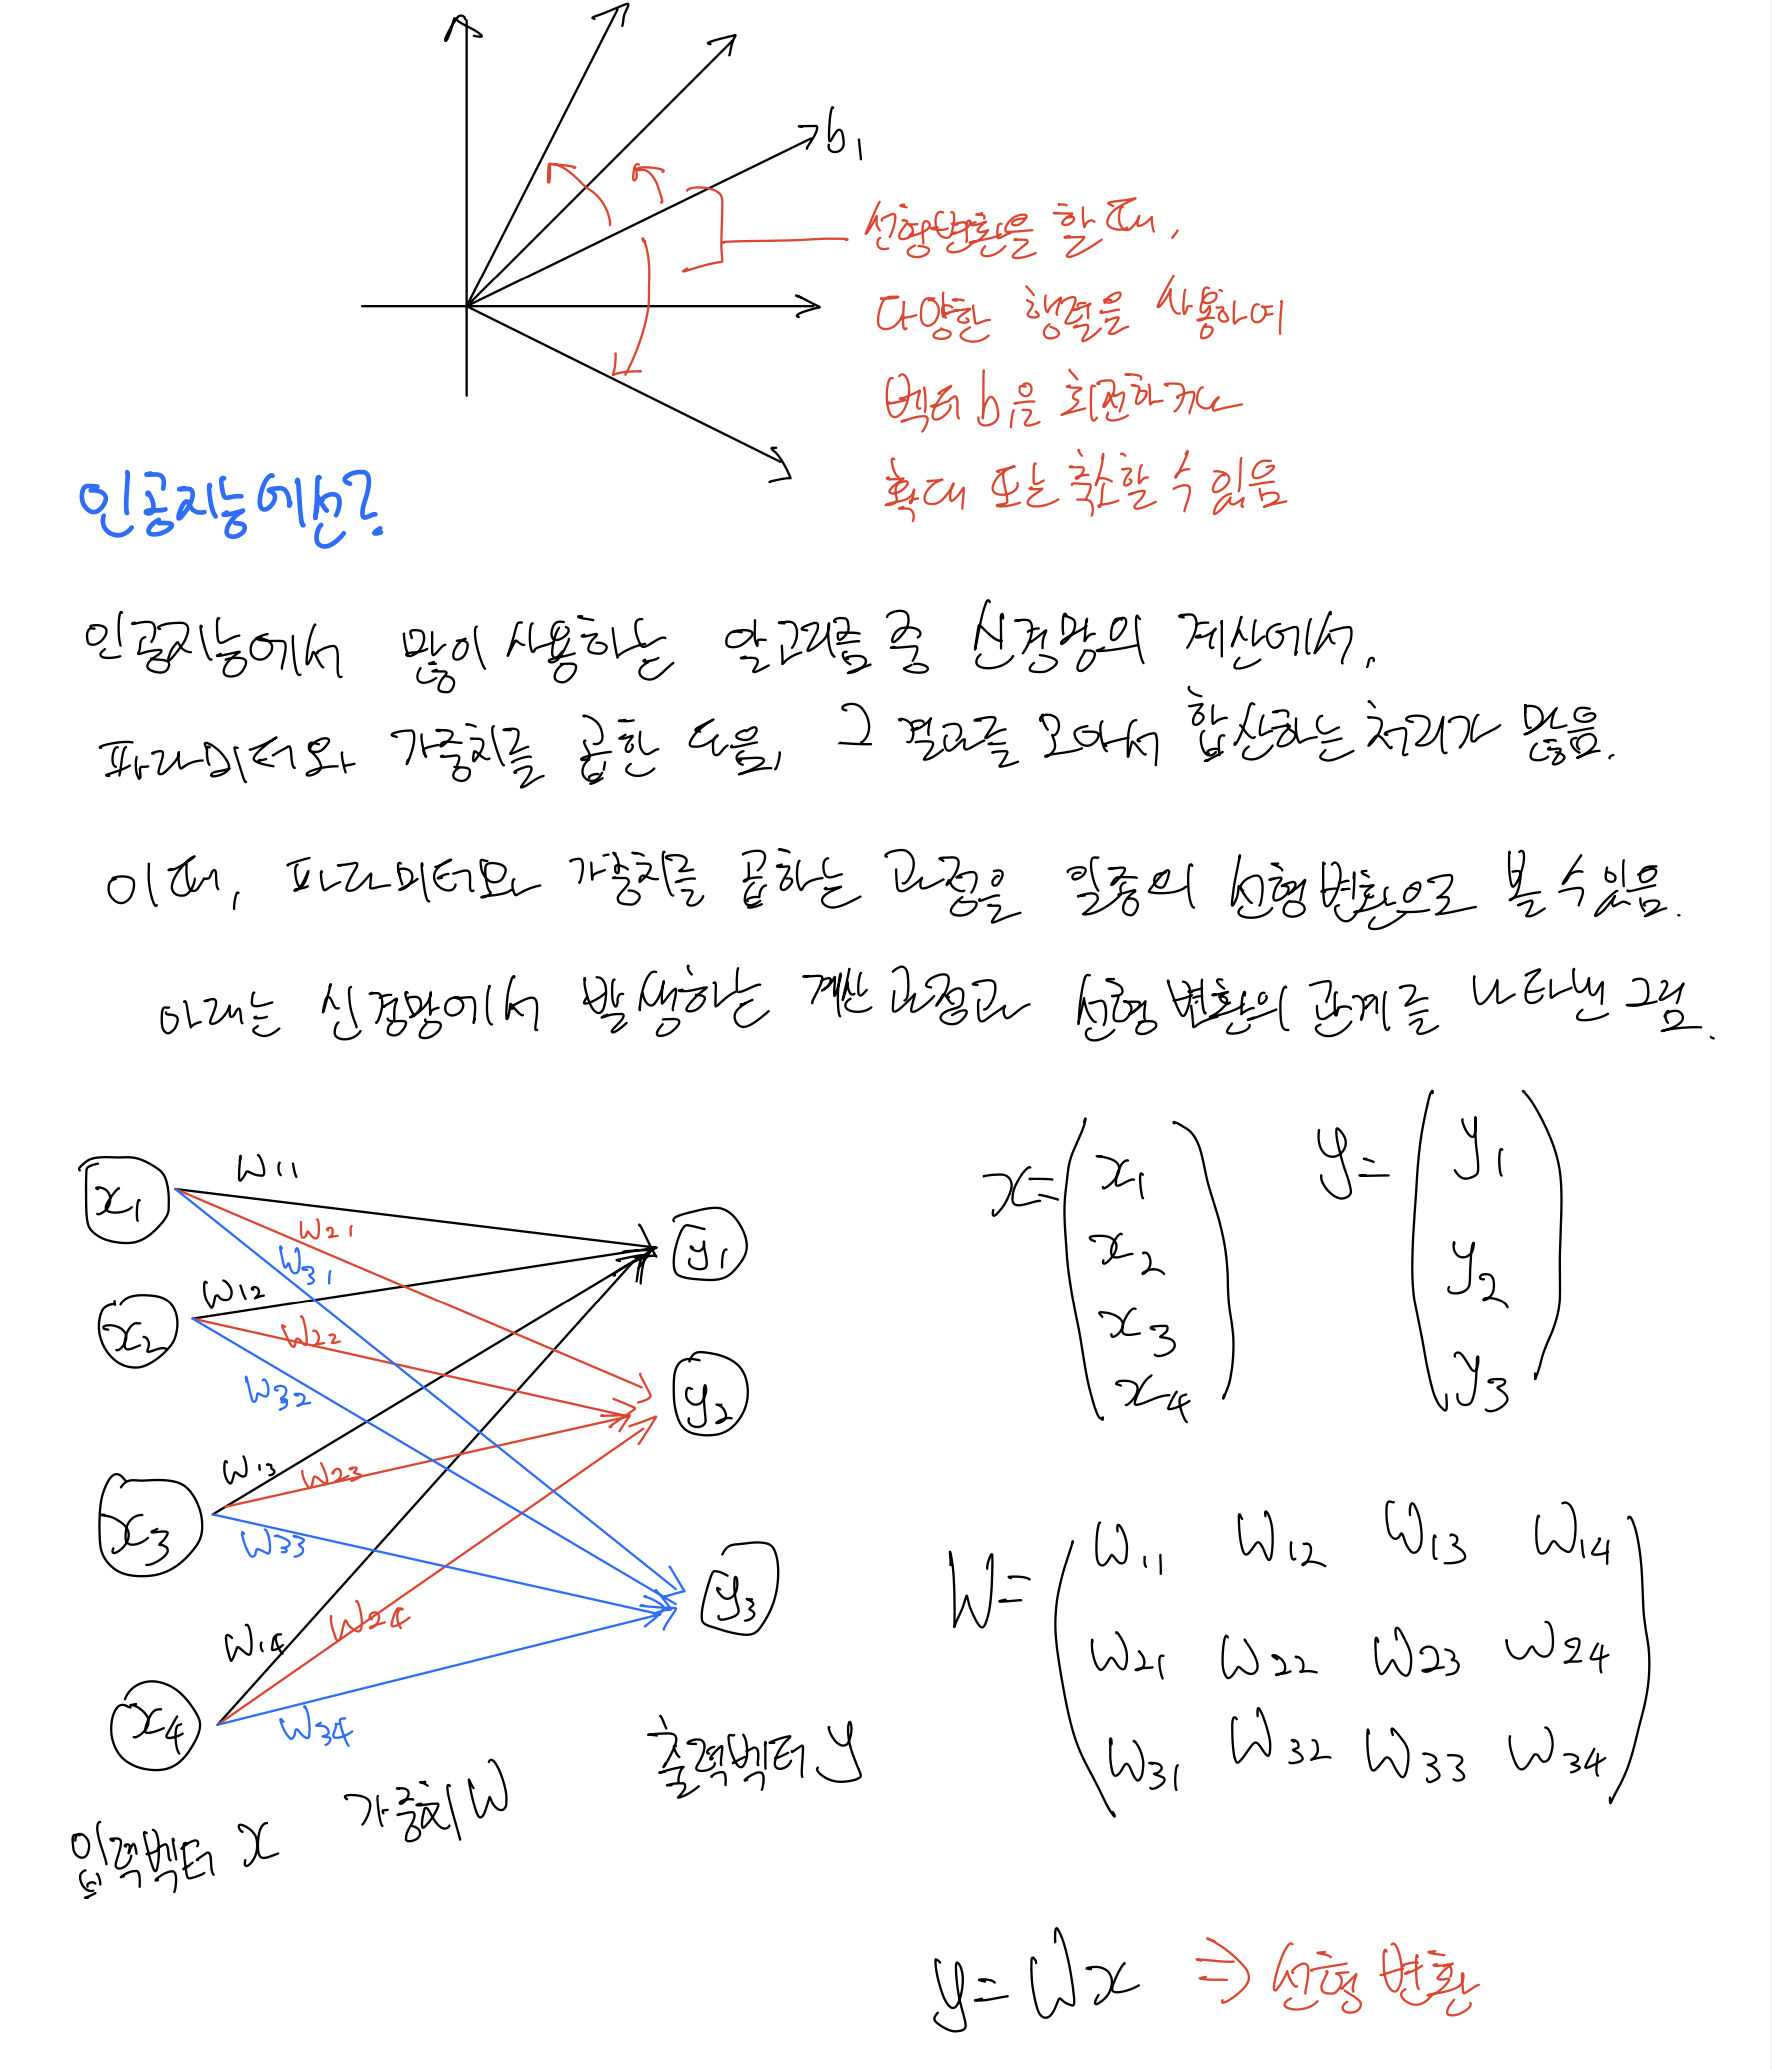 b₁
선형변환을 할 때,
다양한 행렬을 사용하여
벡터 b₁을 회전하거나
확대 또는 축소할 수 있음
인공지능에선?
인공지능에서 많이 사용하는 알고리즘 중 신경망의 계산에서,
파라미터와 가중치를 곱한 다음, 그 결과를 모아서 합산하는 처리가 많음.
이때, 파라미터와 가중치를 곱하는 과정을 일종의 선형 변환으로 볼 수 있음.
아래는 신경망에서 발생하는 계산 과정과 선형 변환의 관계를 나타낸 그림.
x₁
w₁₁
w₂₁
w₃₁
x₂
w₁₂
w₂₂
w₃₂
x₃
w₁₃
w₂₃
w₃₃
x₄
w₁₄
w₂₄
w₃₄
y₁
y₂
y₃
입력벡터 x
가중치 W
출력벡터 y
x=
x₁
x₂
x₃
x₄
y=
y₁
y₂
y₃
W=
w₁₁ w₁₂ w₁₃ w₁₄
w₂₁ w₂₂ w₂₃ w₂₄
w₃₁ w₃₂ w₃₃ w₃₄
y=Wx ⇒ 선형 변환